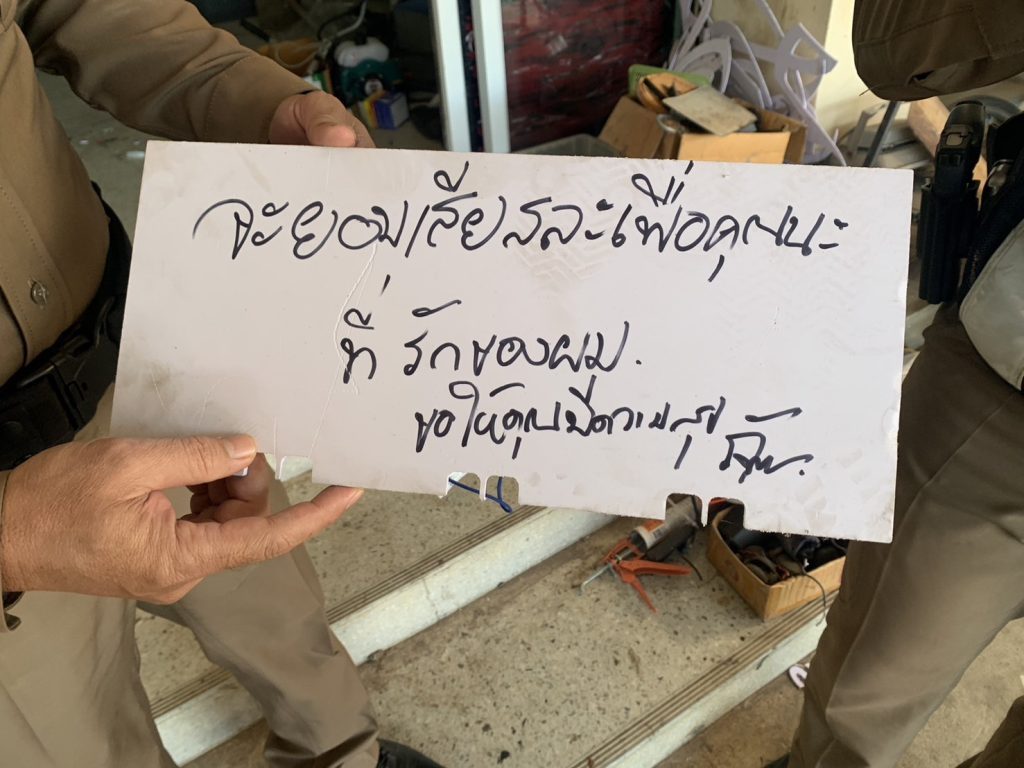 จะยอมเสียสละเพื่อคุณนะ
ที่รักของผม.
ขอให้คุณมีความสุข